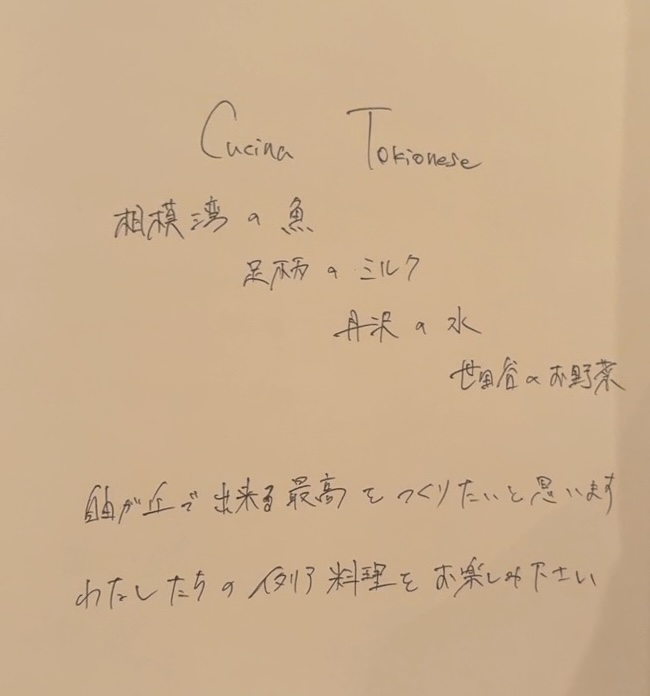 Cucina Tokionese
相模湾の魚
足柄のミルク
丹沢の水
世田谷のお野菜
自由が丘で出来る最高をつくりたいと思います
わたしたちのイタリア料理をお楽しみ下さい